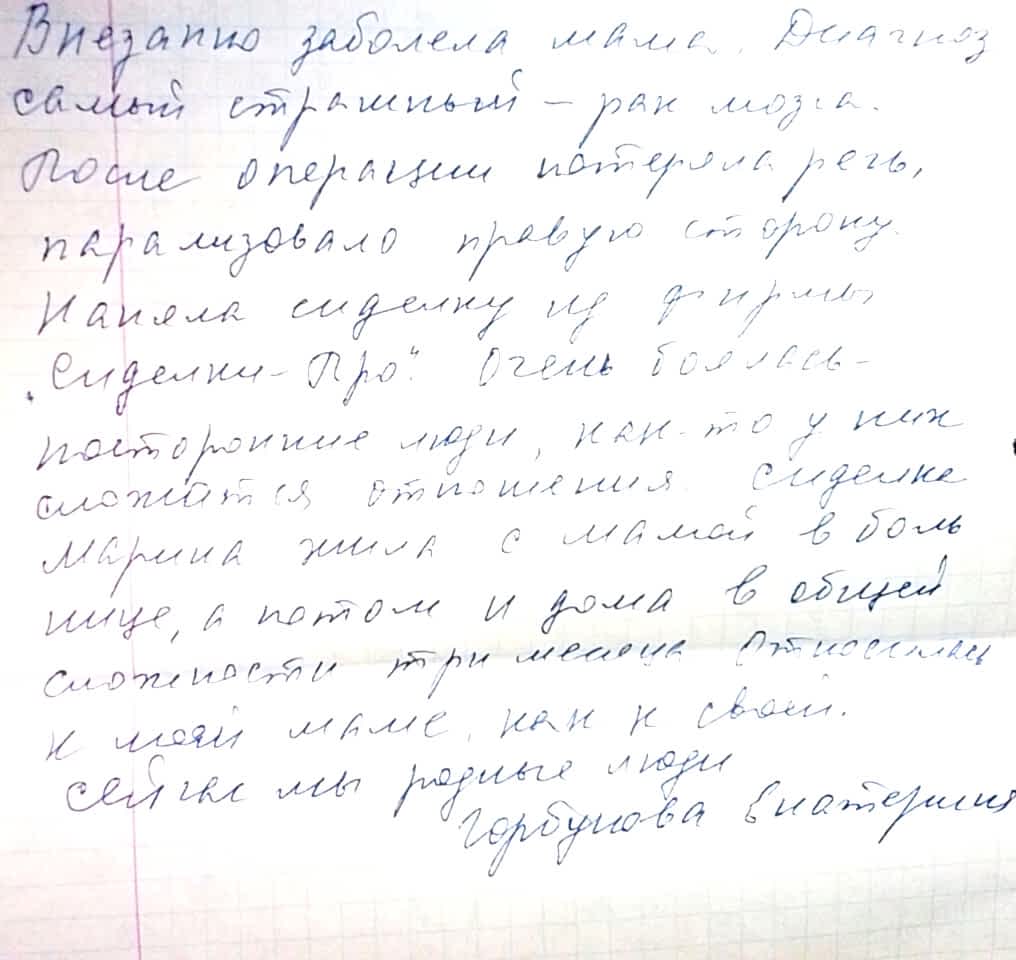 Внезапно заболела мама. Диагноз
самый страшный – рак мозга.
После операции потеряла речь,
парализовало правую сторону.
Наняла сиделку из фирмы
„Сиделки-Про". Очень боялась –
посторонние люди, как-то у них
сложатся отношения. Сиделка
Марина жила с мамой в боль
нице, а потом и дома в общей
сложности три месяца Относилась
к моей маме, как к своей.
Сейчас мы родные люди
Горбунова Екатерина